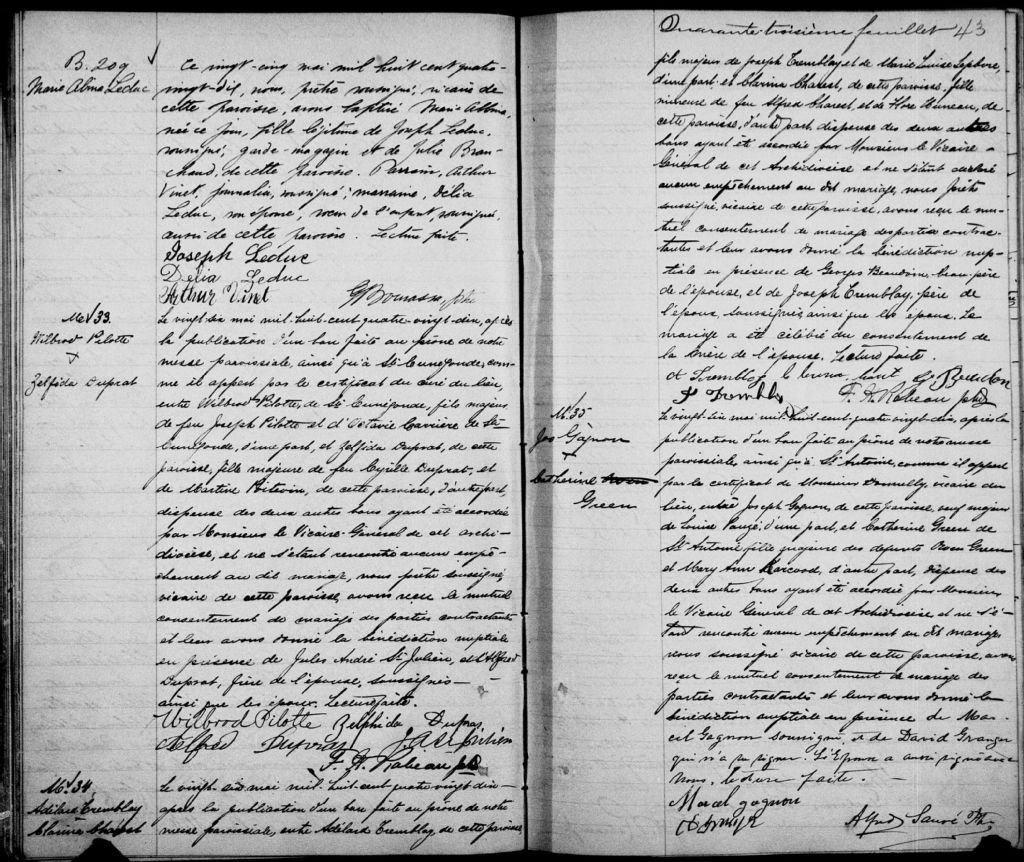 B. 209
Marie Albina Leduc
Ce vingt-cinq mai mil huit cent quatre-
vingt-dix, nous, prêtre soussigné, vicaire de
cette paroisse, avons baptisé Marie Albina,
née ce jour, fille légitime de Joseph Leduc,
soussigné, garde-magasin et de Julie Bran-
chaud, de cette paroisse. Parrain, Arthur
Vinet, journalier, soussigné; marraine, Délia
Leduc, son épouse, sœur de l'enfant, soussignée,
aussi de cette paroisse. Lecture faite.
Joseph Leduc
Délia Leduc
Arthur Vinet
G Bourassa, ptre
M. 33.
Wilbrod Pilotte
x
Zelfida Duprat
Le vingt-six mai mil-huit-cent quatre-vingt-dix, après
la publication d'un ban faite au prône de notre
messe paroissiale, ainsi qu'à St-Cunégonde, com-
me il appert par le certificat du Curé du lieu,
entre Wilbrod Pilotte, de St-Cunégonde, fils majeur
de feu Joseph Pilotte et d'Octavie Carrière de St-
Cunégonde, d'une part, et Zelfida Duprat, de cette
paroisse, fille majeure de feu Cyrille Duprat, et
de Martine Poitevin, de cette paroisse, d'autre part,
dispense des deux autres bans ayant été accordée
par Monsieur le Vicaire-Général de cet archi-
diocèse, et ne s'étant rencontré aucun empê-
chement au dit mariage, nous prêtre soussigné,
vicaire de cette paroisse, avons reçu le mutuel
consentement de mariage des parties contractantes
et leur avons donné la bénédiction nuptiale
en présence de Jules André St Julien, et d'Alfred
Duprat, frère de l'épouse, soussignés
ainsi que les époux. Lecture faite.
Wilbrod Pilotte Zelphida Dupras
Alfred Dupras J. A. St Julien
F. A. Rabeau ptre
M. 34
Adélard Tremblay
Clarina Charest
Le vingt-six mai mil-huit-cent quatre-vingt-dix
après la publication d'un ban faite au prône de notre
messe paroissiale, entre Adélard Tremblay de cette paroisse,
Quarante-troisième feuillet 43
fils majeur de Joseph Tremblay, et de Marie Louise Lefebvre,
d'une part, et Clarina Charest, de cette paroisse, fille
mineure de feu Alfred Charest, et de Flore Huneau, de
cette paroisse, d'autre part, dispense des deux autres
bans ayant été accordée par Monsieur le Vicaire-
Général de cet Archidiocèse et ne s'étant déclaré
aucun empêchement au dit mariage, nous Prêtre
soussigné, vicaire de cette paroisse, avons reçu le mu-
tuel consentement de mariage des parties contrac-
tantes et leur avons donné la bénédiction nup-
tiale en présence de Georges Beaudoin, beau-père
de l'épouse, et de Joseph Tremblay, père de
l'époux, soussignés ainsi que les époux. Le
mariage a été célébré du consentement de
la Mère de l'épouse. Lecture faite.
A Tremblay G Beaudoin
J Tremblay F. A. Rabeau ptre
M. 35
Jos Gagnon
x
Catherine
Green
Le vingt-six mai mil-huit-cent quatre-vingt-dix, après la
publication d'un ban faite au prône de notre messe
paroissiale, ainsi qu'à St Antoine, comme il appert
par le certificat de Monsieur Donnelly, vicaire du
lieu, entre Joseph Gagnon, de cette paroisse, veuf majeur
de Louise Paugé, d'une part, et Catherine Green de
St Antoine, fille majeure des défunts Owen Green
et Mary Ann Harcood, d'autre part, dispense des
deux autres bans ayant été accordée par Monsieur
le Vicaire Général de cet Archidiocèse et ne s'é-
tant rencontré aucun empêchement au dit mariage,
nous soussigné vicaire de cette paroisse, avons
reçu le mutuel consentement de mariage des
parties contractantes et leur avons donné la
bénédiction nuptiale en présence de Mar-
cel Gagnon soussigné, et de David Granger
qui n'a su signer. L'Epoux a aussi signé avec
nous, lecture faite.
Marcel gagnon
Alfred Sauvé Ptre